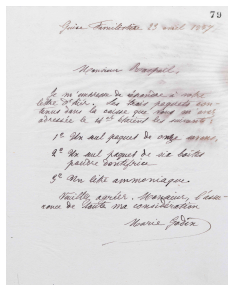 79
Guise Familistère 23 avril 1887
Monsieur
Je m'empresse de répondre à votre
lettre d'hier. Les trois paquets con-
tenus dans la caisse que vous m'avez
adressée le 14 étaient les suivants:
1º Un seul paquet de onze
2º Un seul paquet de six boîtes
poudre dentifrice
3º Un litre ammoniaque.
Veuillez agréer, Monsieur, l'assu-
rance de toute ma considération
Marie Godin